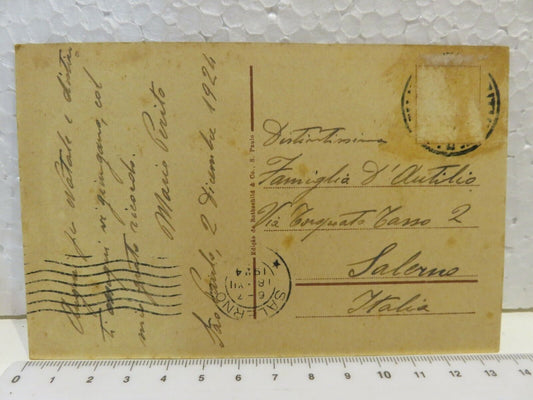 Auguri di Natale e distin
ti auguri vi giungano, col
mio grato ricordo.
Mario Perito
São Paulo 2 Dicembre 1924
Edição de Rothschild & Co., S. Paulo
Distintissima
Famiglia D'Antilio
Via Torquato Tasso 2
Salerno
Italia
SALERNO
6-7
18 · XII
1924
0 1 2 3 4 5 6 7 8 9 10 11 12 13 14